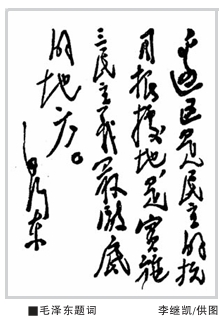 边区是民主的抗
日根据地，是实施
三民主义最彻底
的地方。
毛泽东
■毛泽东题词
李继凯/供图